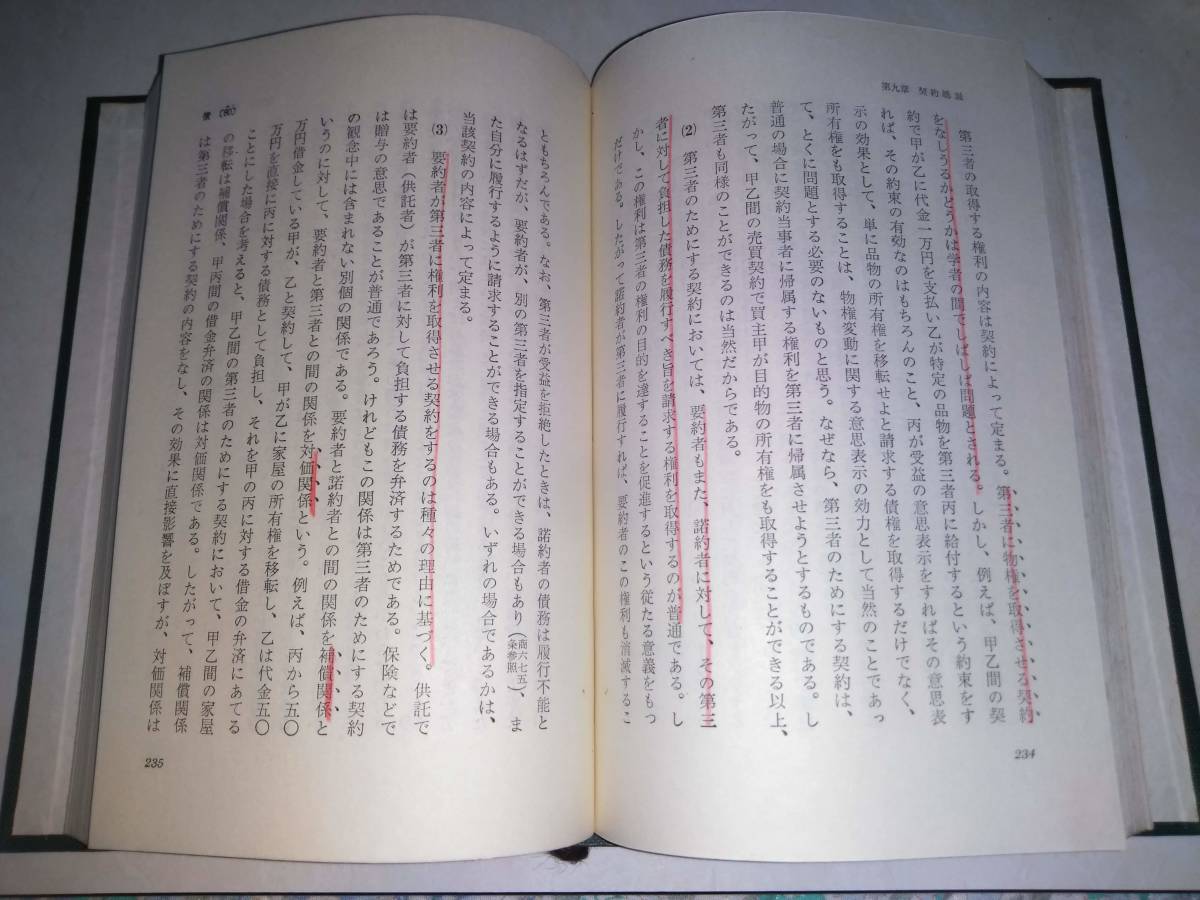 第九章 契約総論
第三者の取得する権利の内容は契約によって定まる。第三者に物権を取得させる契約
をなしうるかどうかは学者の間でしばしば問題とされる。しかし、例えば、甲乙間の契
約で甲が乙に代金一万円を支払い乙が特定の品物を第三者丙に給付するという約束をす
れば、その約束の有効なのはもちろんのこと、丙が受益の意思表示をすればその意思表
示の効果として、単に品物の所有権を移転せよと請求する債権を取得するだけでなく、
所有権をも取得することは、物権変動に関する意思表示の効力として当然のことであっ
て、とくに問題とする必要のないものと思う。なぜなら、第三者のためにする契約は、
普通の場合に契約当事者に帰属する権利を第三者に帰属させようとするものである。し
たがって、甲乙間の売買契約で買主甲が目的物の所有権をも取得することができる以上、
第三者も同様のことができるのは当然だからである。
(2) 第三者のためにする契約においては、要約者もまた、諾約者に対して、その第三
者に対して負担した債務を履行すべき旨を請求する権利を取得するのが普通である。し
かし、この権利は第三者の権利の目的を達することを促進するという従たる意義をもっ
だけである。したがって諾約者が第三者に履行すれば、要約者のこの権利も消滅するこ
234
ともちろんである。なお、第三者が受益を拒絶したときは、諾約者の債務は履行不能と
なるはずだが、要約者が、別の第三者を指定することができる場合もあり(商六七五条参照)、ま
た自分に履行するように請求することができる場合もある。いずれの場合であるかは、
当該契約の内容によって定まる。
(3) 要約者が第三者に権利を取得させる契約をするのは種々の理由に基づく。供託で
は要約者(供託者)が第三者に対して負担する債務を弁済するためである。保険などで
は贈与の意思であることが普通であろう。けれどもこの関係は第三者のためにする契約
の観念中には含まれない別個の関係である。要約者と諾約者との間の関係を補償関係と
いうのに対して、要約者と第三者との間の関係を対価関係という。例えば、丙から五〇
万円借金している甲が、乙と契約して、甲が乙に家屋の所有権を移転し、乙は代金五〇
万円を直接に丙に対する債務として負担し、それを甲の丙に対する借金の弁済にあてる
ことにした場合を考えると、甲乙間の第三者のためにする契約において、甲乙間の家屋
の移転は補償関係、甲丙間の借金弁済の関係は対価関係である。したがって、補償関係
は第三者のためにする契約の内容をなし、その効果に直接影響を及ぼすが、対価関係は
235